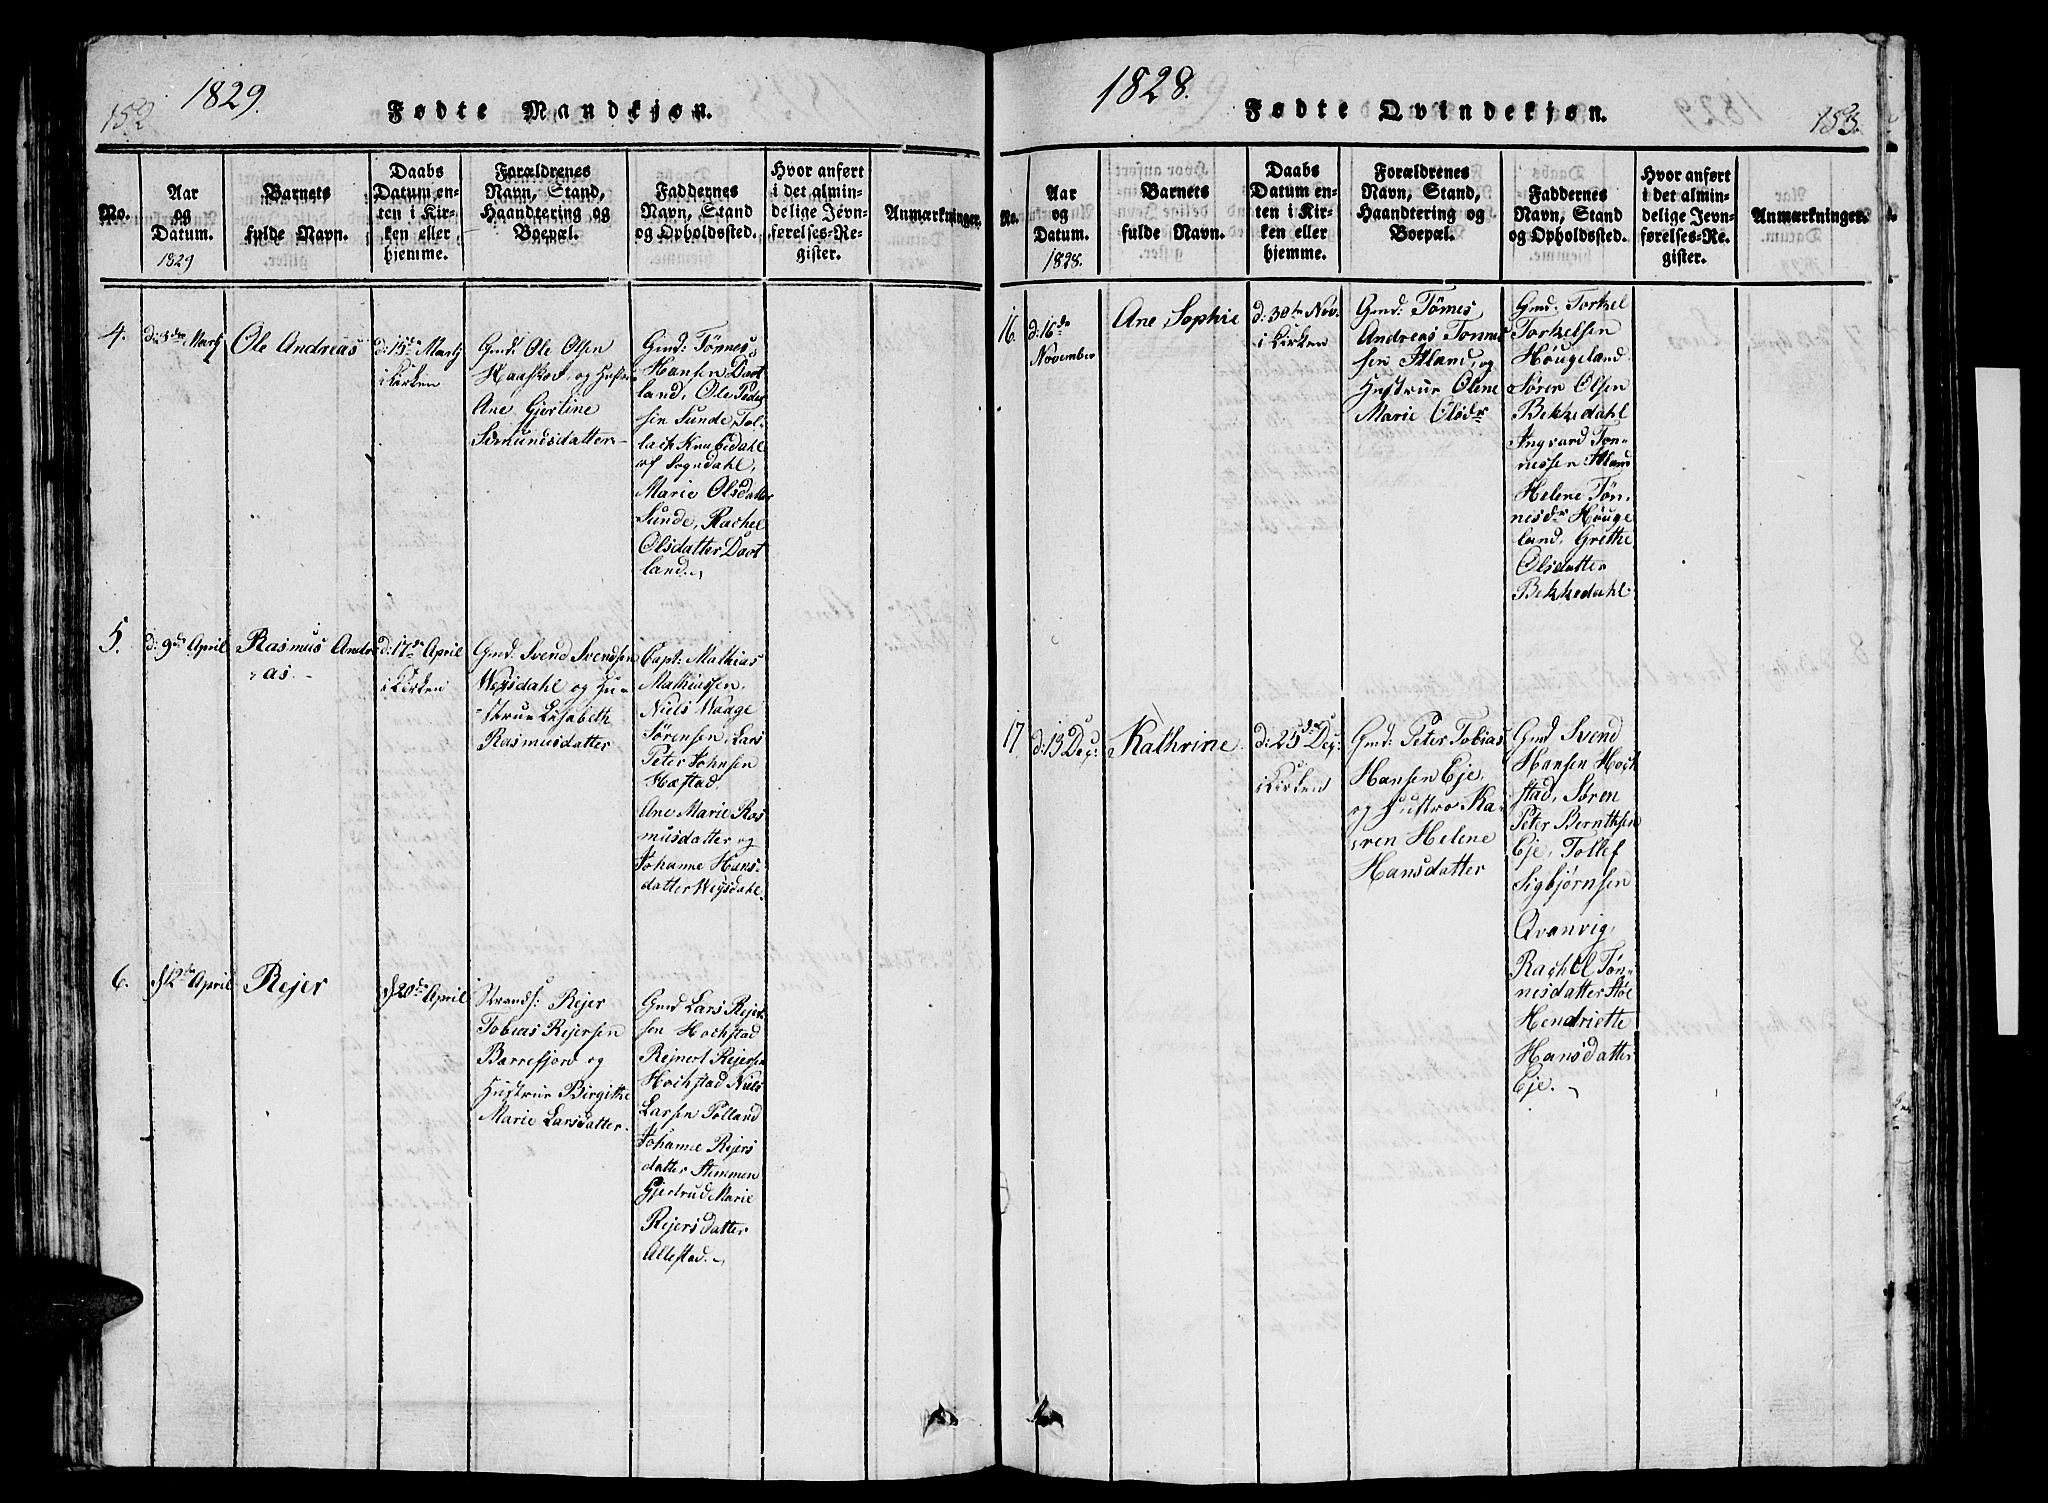 152
1829.
Fødte Mandkjøn.
No.
Aar
og
Datum.
1829
Barnets
fulde Navn.
Daabs
Datum en-
ten i Kir-
ken eller
hjemme.
Forældrenes
Navn, Stand,
Haandtering og
Boepæl.
Faddernes
Navn, Stand
og Opholdssted.
Hvor anført
i det almin-
delige Jevn-
førelses-Re-
gister.
Anmærkninger.
4.
Ole Andreas
d: 15de Martj
i Kirken
Gmd: Ole Olsen
Haaskot, og Hustrue
Ane Gjertine
Simundsdatter
Gmd: Tønnes
Hansen Dært
land, Ole Peder
sen Sunde, Tol-
lach Knubedahl
af Sogndahl,
Marie Olsdatter
Sunde, Rachel
Olsdatter Dært
land.
5.
d: 9de April
Rasmus Andre
as.
d: 17de April
i Kirken
Gmd: Svend Svendsen
Wegsdahl og Hu-
strue Lisabeth
Rasmusdatter
Capt: Mathias
Mathiassen,
Niels Waage
Sørensen, Lars
Peter Johnsen
Hæstad,
Ane Marie Ras
musdatter og
Johanne Hans-
datter Wegsdahl.
6.
d 12de April
Rejer
d 20de April
Strands: Rejer
Tobias Rejersen
Barrefjord og
Hustrue Birgithe
Marie Larsdatter.
Gmd Lars Rejer-
sen Hochstad
Rejnert Rejersen
Hochstad Niels
Larsen Tolland
Johanne Rejers
datter Stemmen
Gjertrud Marie
Rejersdatter
Allestad.
1828.
Fødte Qvindekjøn.
153.
No.
Aar
og
Datum.
1828.
Barnets
fulde Navn.
Daabs
Datum en-
ten i Kir-
ken eller
hjemme.
Forældrenes
Navn, Stand,
Haandtering og
Boepæl.
Faddernes
Navn, Stand
og Opholdssted.
Hvor anført
i det almin-
delige Jevn-
førelses-Re-
gister.
Anmærkninger.
16.
d: 16de
November
Ane Sophie
d: 30te Nov.
i Kirken
Gmd: Tømes
Andreas Tonnes
sen Aaland, og
Hustrue Olene
Marie Olsdr
Gmd: Torkel
Torkelsen
Høugeland.
Søren Olsen
Bekkedahl
Ingvard Ton-
nessen Aaland
Helene Tøn-
nesdr Høuge
land, Grethe
Olsdatter
Bekkedahl
17
d: 13 Dec:
Kathrine
d: 25de Dec:
i Kirken
Gmd: Peter Tobias
Hansen Eje,
og Hustro Ka-
ren Helene
Hansdatter
Gmd Svend
Hansen Hoch
stad, Søren
Peter Bernthsen
Eje, Tollef
Sigbjørnsen
Qvanvig,
Rachel Tøn-
nesdatter Støe
Hendriette
Hansdatter
Eje.